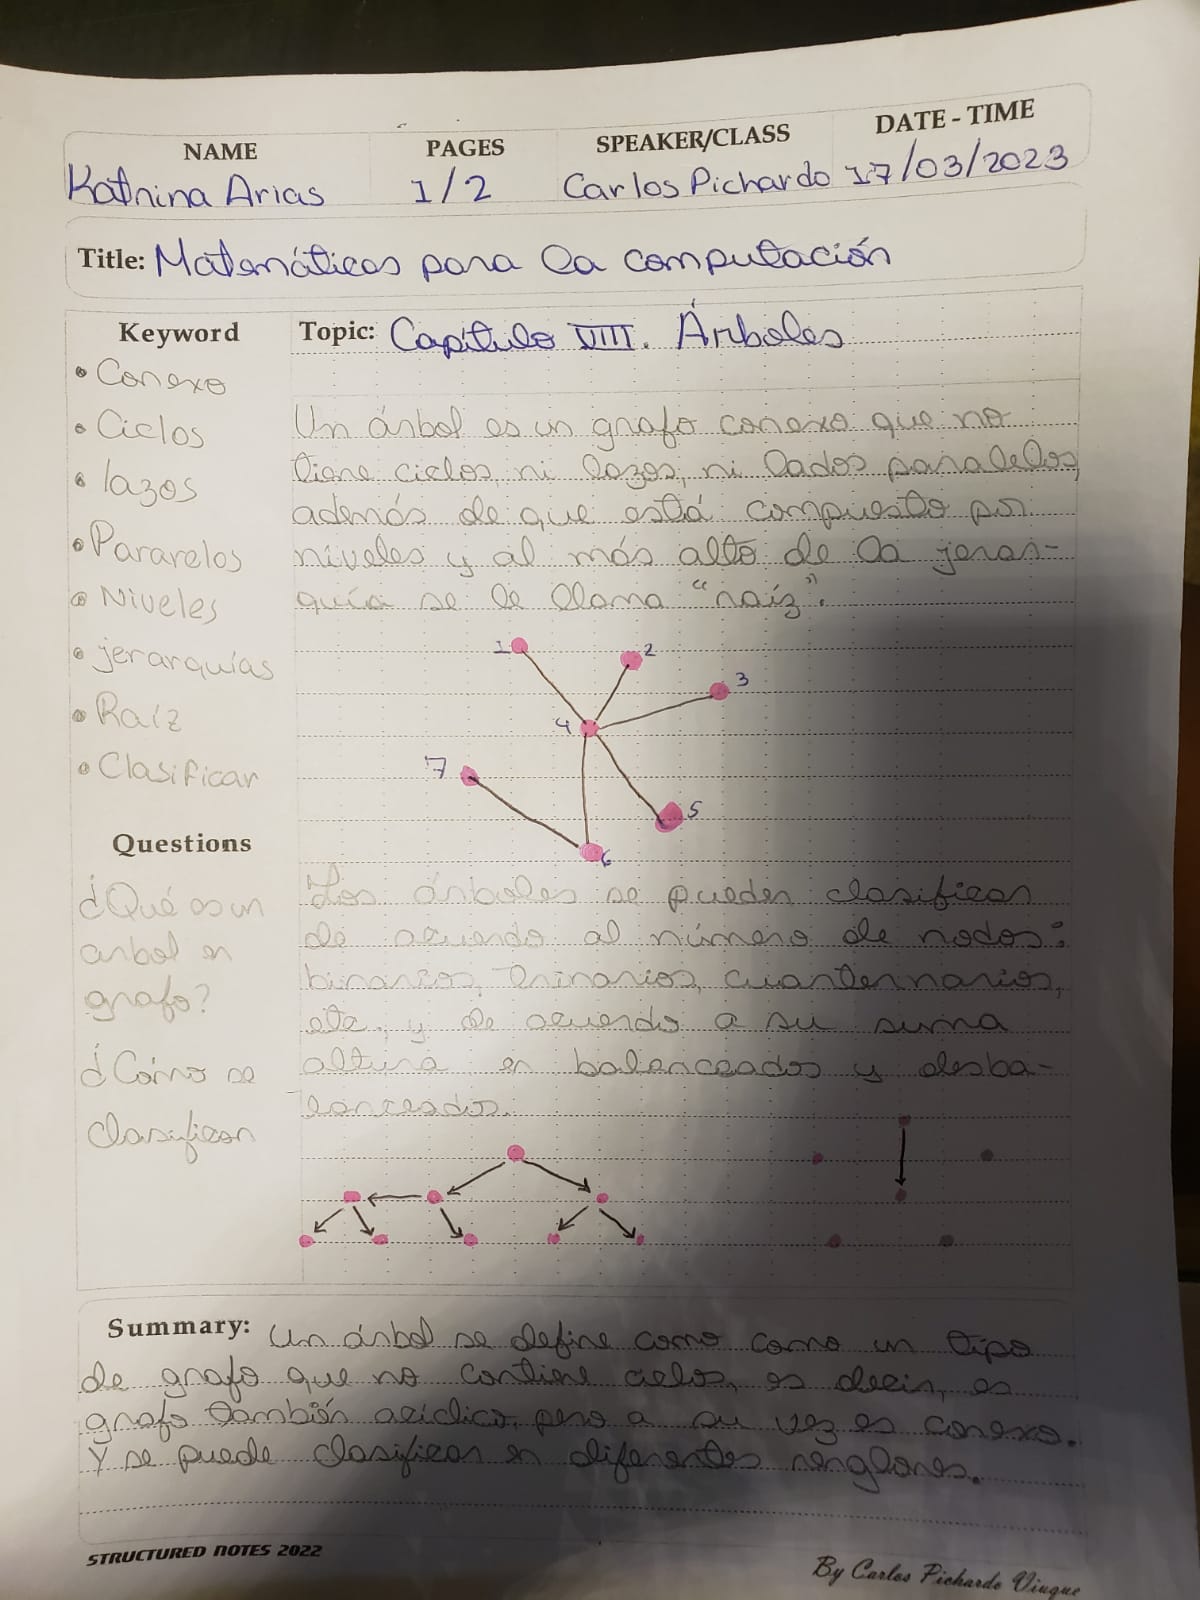 NAME PAGES SPEAKER/CLASS DATE - TIME
Katnina Arias 1/2 Carlos Pichardo 17/03/2023
Title: Matemáticas para la computación
Keyword
• Conexo
• Ciclos
• lazos
• Pararelos
• Niveles
• jerarquías
• Raíz
• Clasificar
Questions
¿Qué es un
arbol en
grafo?
¿Cómo se
clasifican
Topic: Capítulo VIII. Árboles
Un árbol es un grafo conexo que no
tiene ciclos, ni lazos, ni lados paralelos,
además de que está compuesto por
niveles y al más alto de la jerar-
quía se le llama "raíz".
1
2
3
4
7
5
6
Los árboles se pueden clasificar
de acuerdo al número de nodos:
binarios, trinarios, cuanternarios,
etc, y de acuerdo a su suma
altura en balanceados y desba-
lanceados.
Summary: Un árbol se define como como un tipo
de grafo que no contiene ciclos, es decir, es
grafo también acíclico, pero a su vez es conexo.
Y se puede clasificar en diferentes renglones.
STRUCTURED NOTES 2022
By Carlos Pichardo Viuque